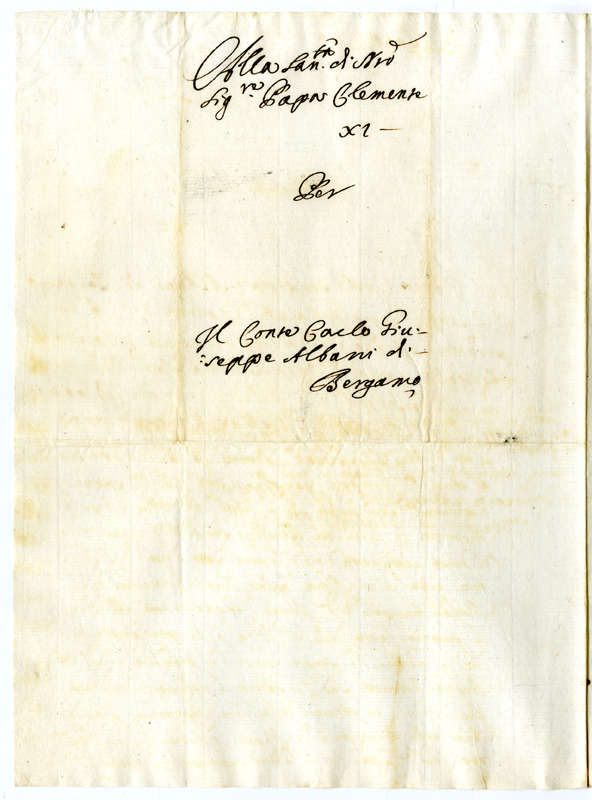 Alla San.tà di Nrō
Sig.re Papa Clemente
XI —
Per
Il Conte Carlo Giu:-
:seppe Albani di -
Bergamo